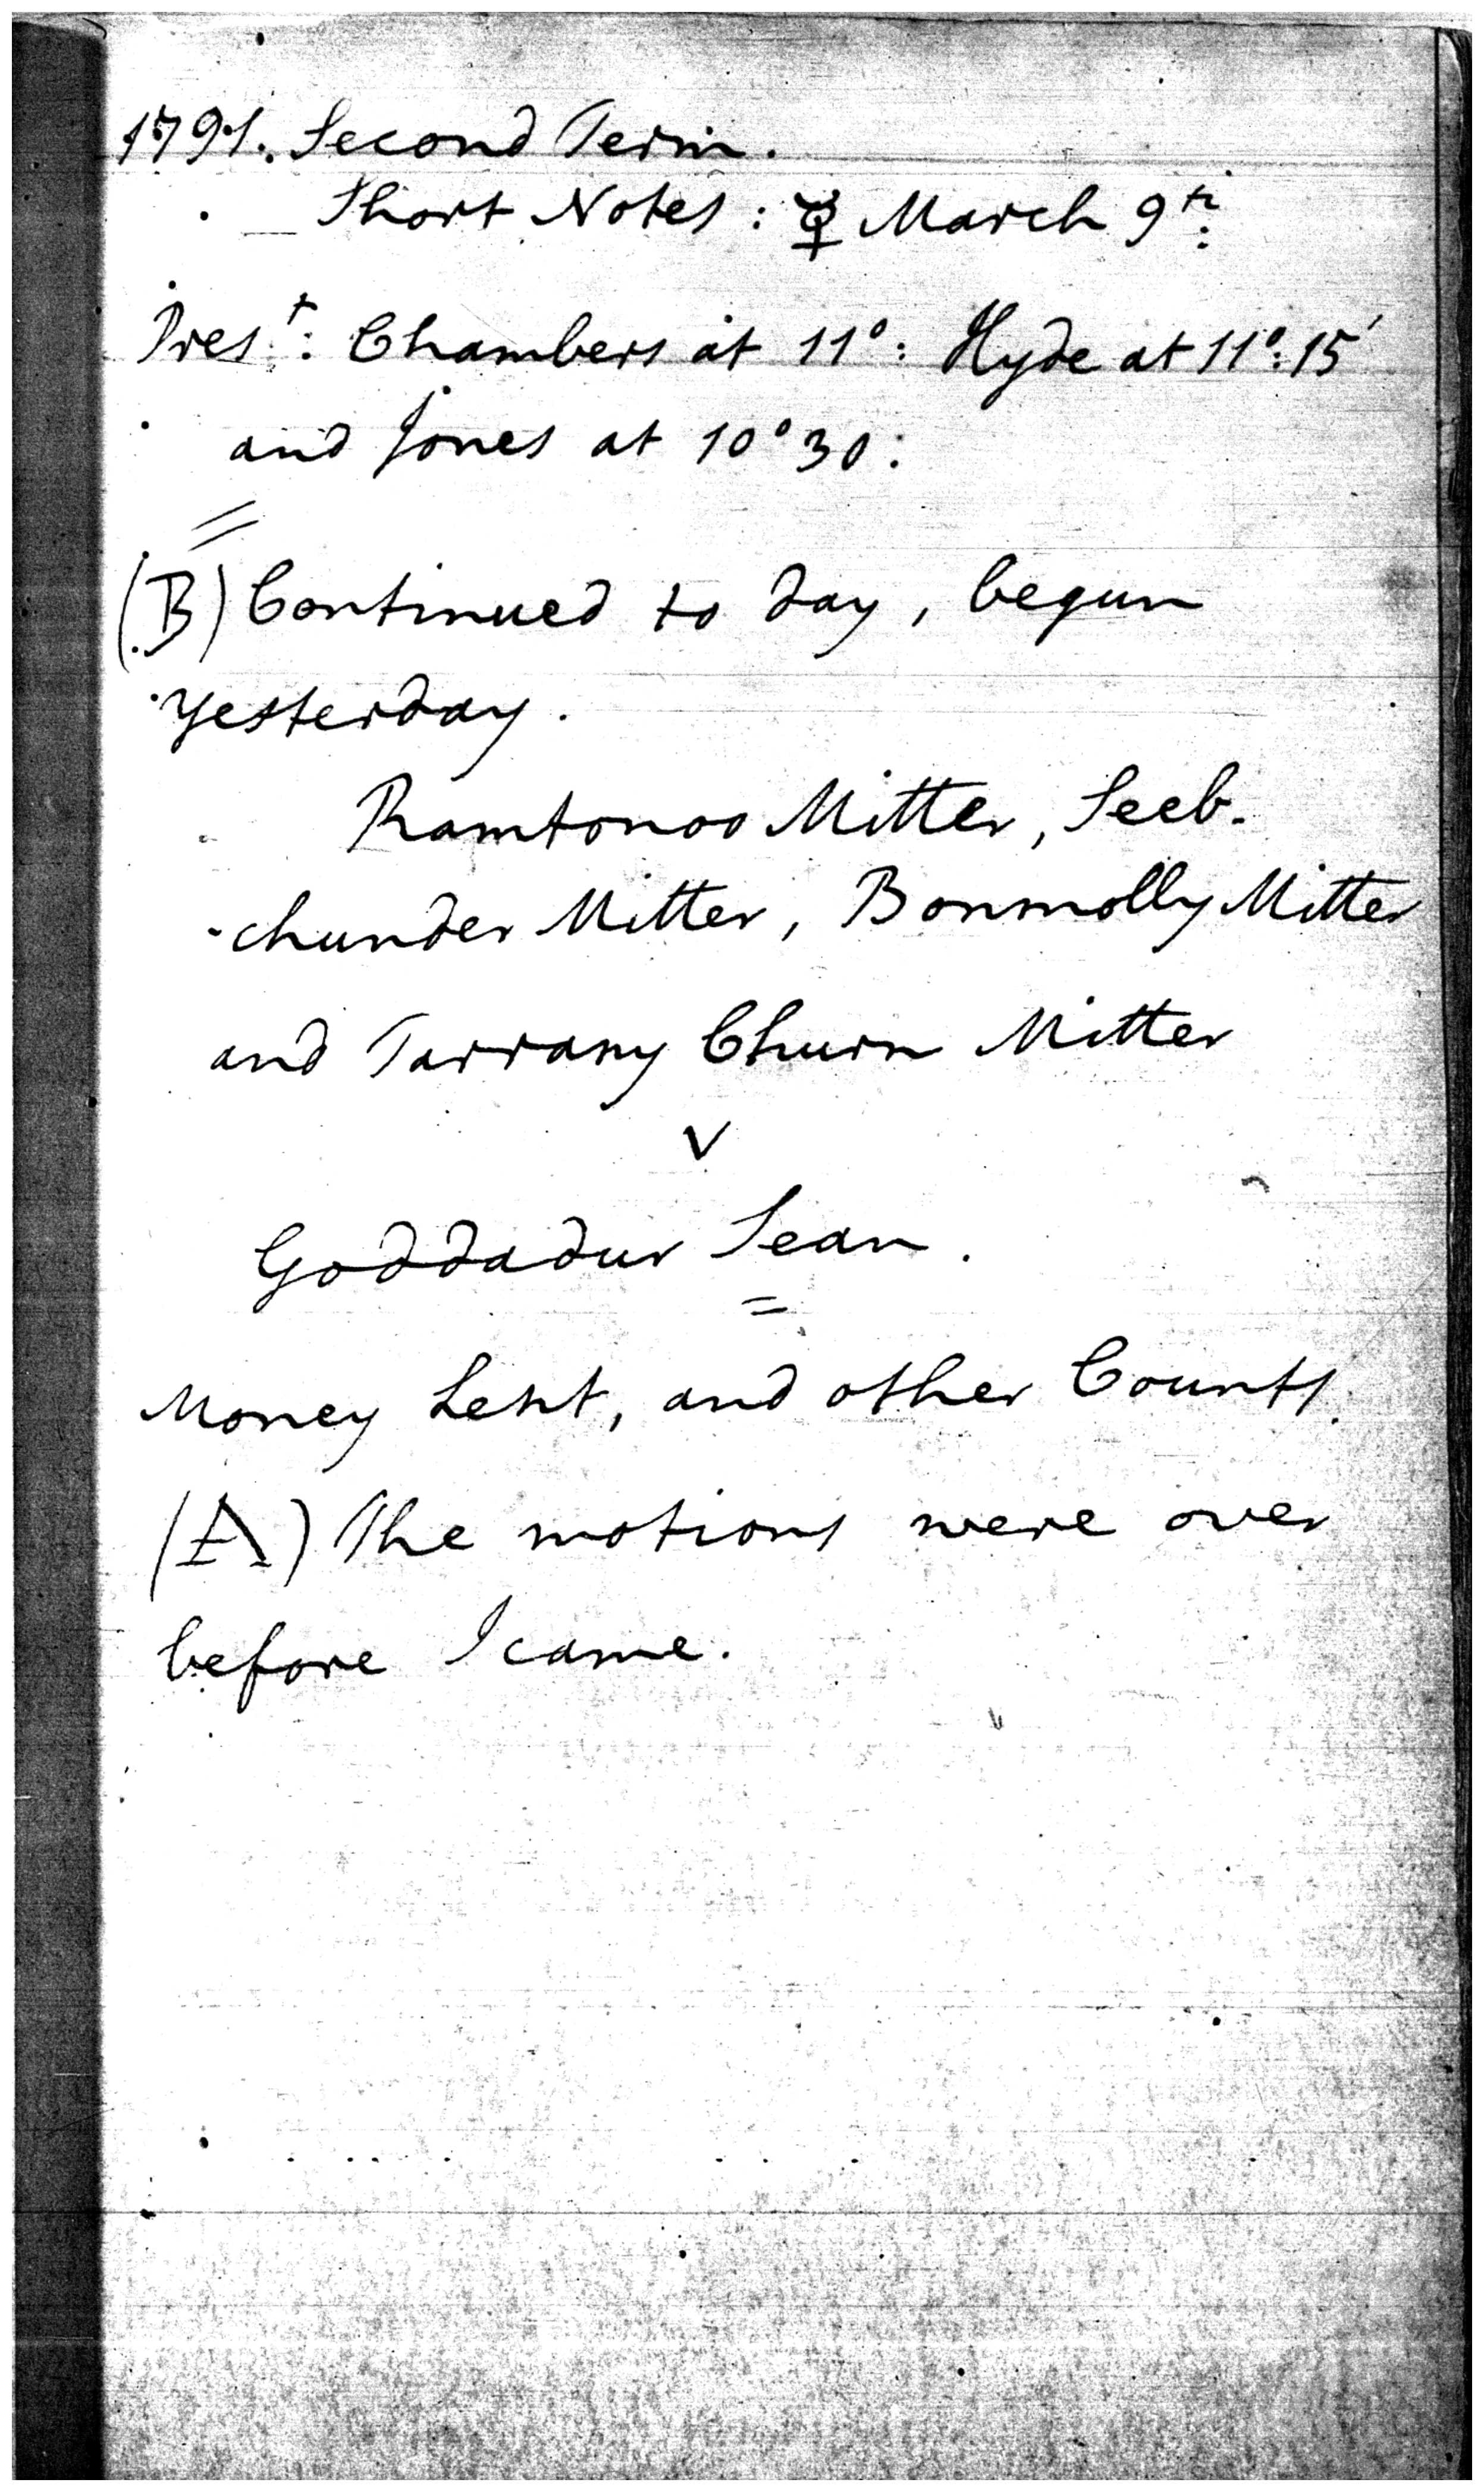 1791. Second Term.
Short Notes: ☿ March 9th:
Prest: Chambers at 11°: Hyde at 11°:15'
and Jones at 10°30:
(B) Continued to day, begun
yesterday.
Ramtonoo Mitter, Seeb-
-chunder Mitter, Bonmolly Mitter
and Tarrany Churn Mitter
V
Goddadur Sean.
=
Money Lent, and other Counts.
(A) The motions were over
before I came.